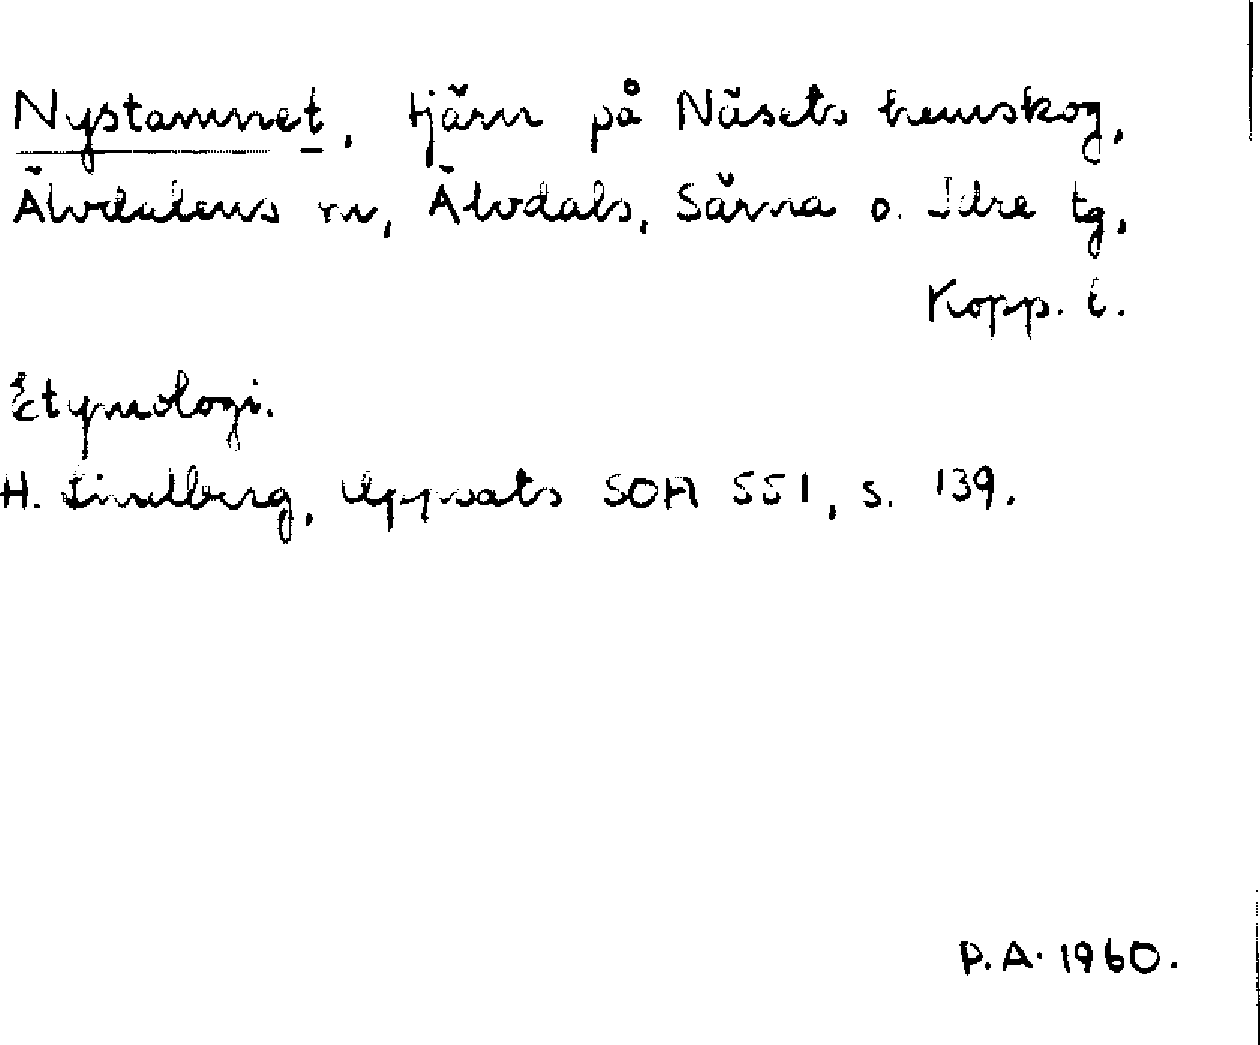 Nystamnet, tjärn på Näsets hemskog,
Älvdalens sn, Älvdals, Särna o. Idre tg,
Kopp. l.
Etymologi.
H. Lindberg, Uppsats SOA 551, s. 139.
P.A. 1960.